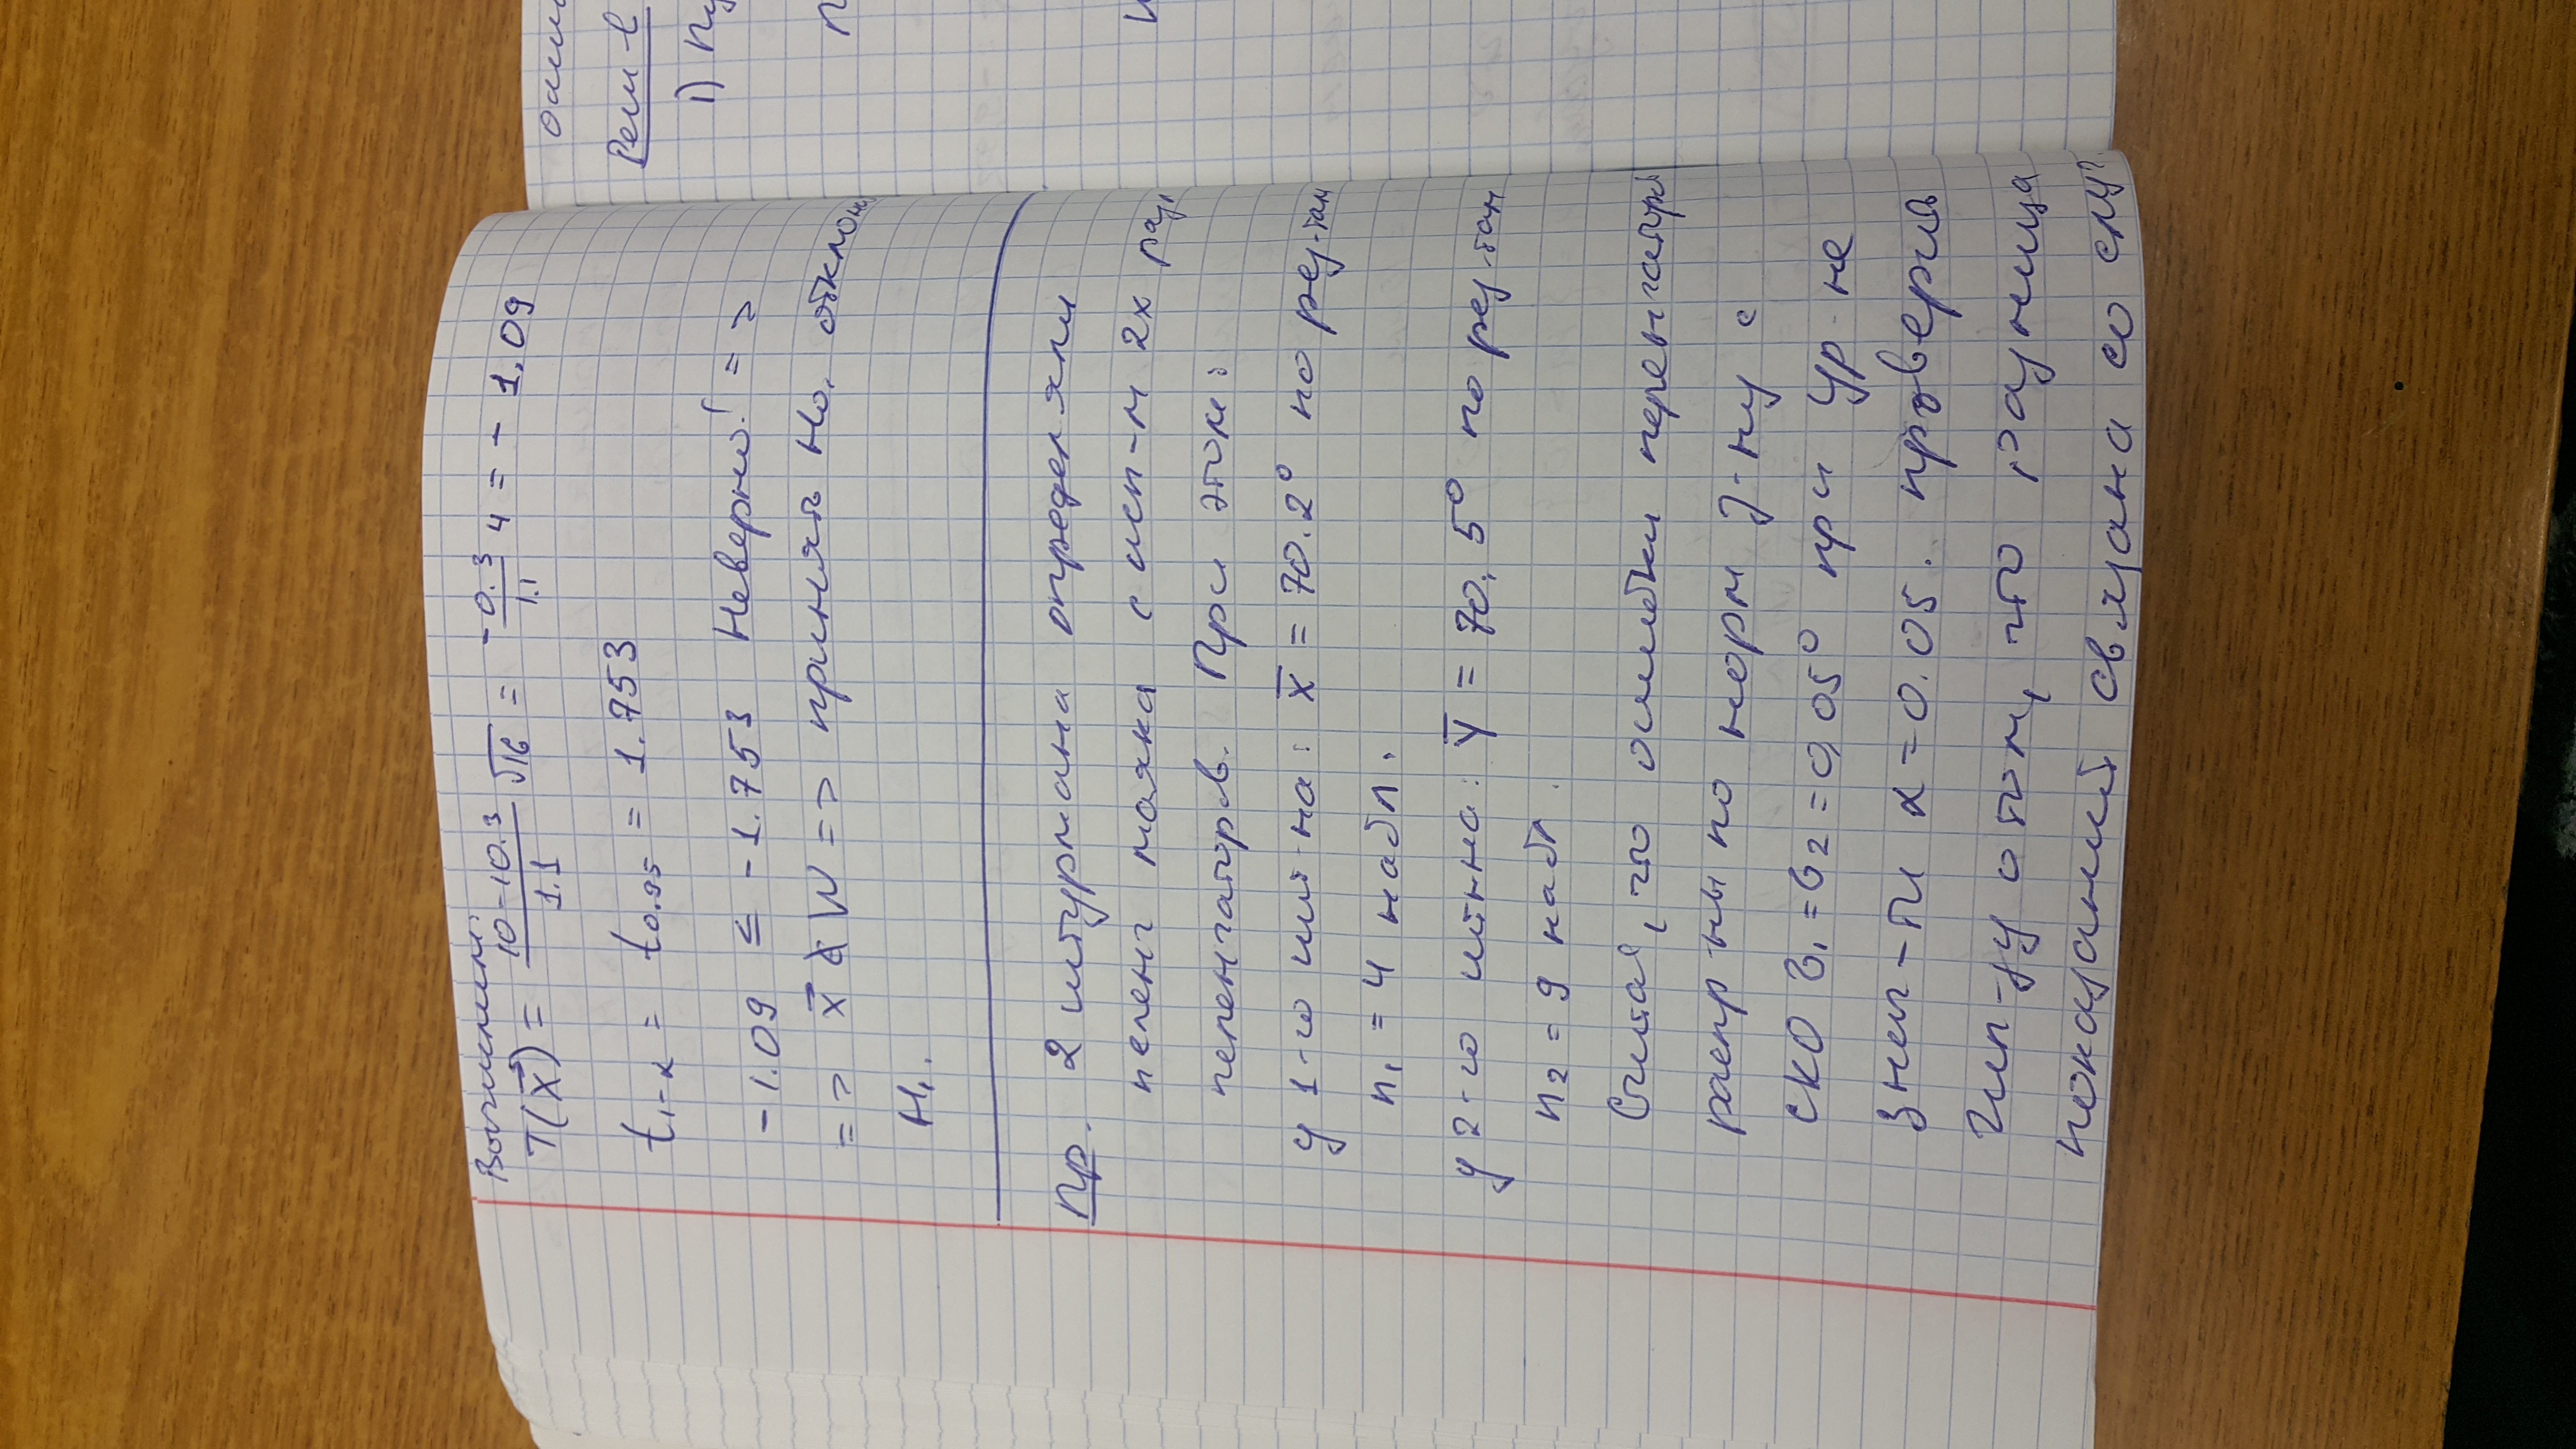 Вычислим:
T(x⃗) = (10 - 10.3)/1.1 √16 = -0.3/1.1 4 = - 1,09
t₁₋α = t₀.₉₅ = 1.753
-1.09 ≤ -1.753 Неверно! =>
=> x⃗ ∉ W => принять H₀, отклон
H₁.
Пр. 2 штурмана определяли
пеленг маяка с исп-м 2х раз
пеленгаторов. При этом:
у 1-го шт-на: x̄ = 70.2° по рез-там
n₁ = 4 набл.
у 2-го шт-на: ȳ = 70,5° по рез-там
n₂ = 9 набл.
Считая, что ошибки пеленгатора
распр-ны по норм з-ну с
СКО σ₁ = σ₂ = 0,05° при ур-не
знач-ти α = 0.05. проверить
гип-зу о том, что разница
показаний связана со случ
ошиб
Реш-е
1) П
п